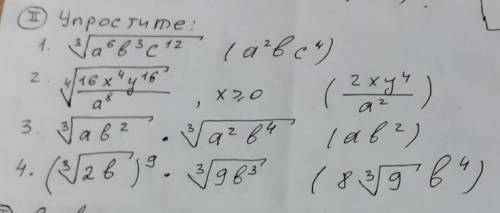 II Упростите:
1. ∛(a⁶b³c¹²) (a²bc⁴)
2. ∜(16x⁴y¹⁶/a⁸), x⩾0 (2xy⁴/a²)
3. ∛(ab²) · ∛(a²b⁴) (ab²)
4. (∛(2b))⁹ · ∛(9b³) (8∛9 b⁴)